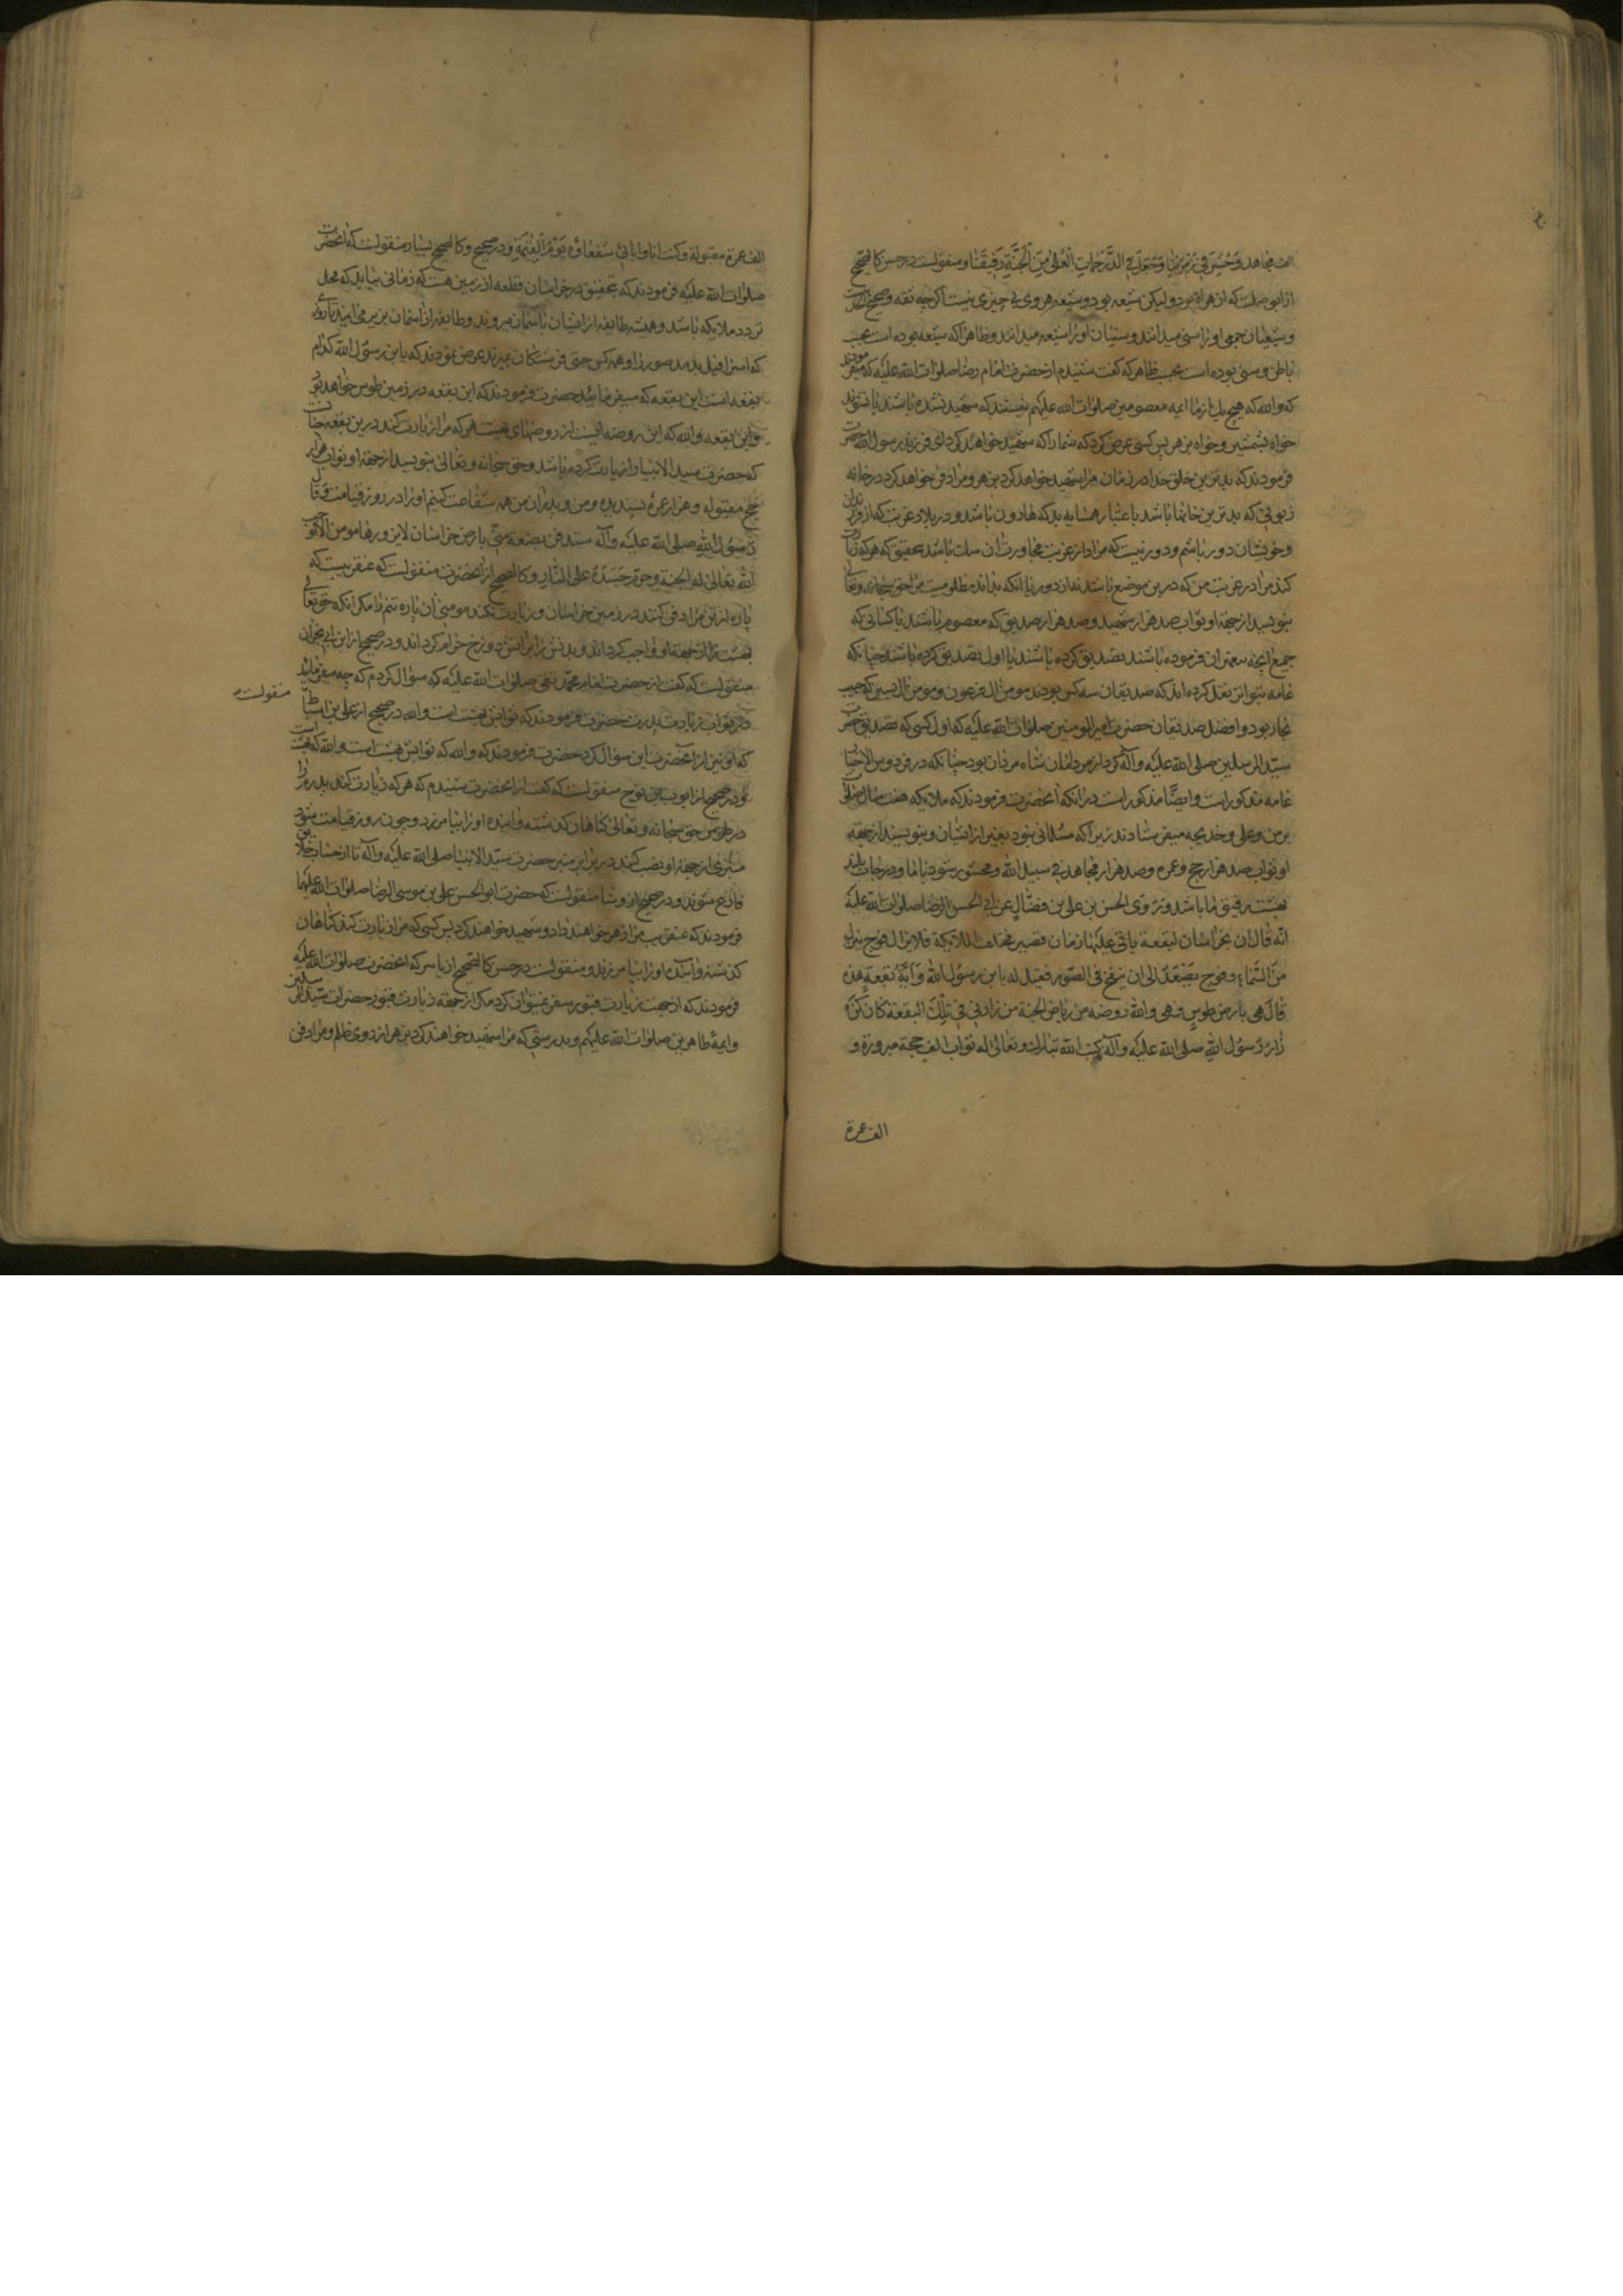 الف مجاهد وحشر في زمرتنا وجعل في الدرجات العلى من الجنة رفيقنا ومنقولست در حسن كالصحيح
از ابو صلت كه از هراة بود وليكن شيعه بود وشيعه هروى بى چيزى نيست اكرچه ثقه وصحيح است
وشيعيان جمعى او را سنى ميدانند وسنيان او را شيعه ميدانند وظاهرا كه شيعه بوده است بحسب
باطن وسنى بوده است بحسب ظاهر كه گفت شنيدم از حضرت امام رضا صلوات الله عليه كه ميفرمودند
كه والله كه هيچ يك از ما ائمه معصومين صلوات الله عليهم نيستند كه شهيد نشده باشند يا نشوند
خواه بشمشير وخواه بزهر پس كسى عرض كرد كه شما را كه شهيد خواهد كرد اى فرزند رسول الله حضرت
فرمودند كه بدترين خلق خدا در زمان من مرا شهيد خواهد كرد بزهر ومرا دفن خواهد كرد در خانه
زبونى كه بدترين خانها باشد باعتبار همسايه بد كه هارون باشد ودر بلاد غربت كه از فرزندان
وخويشان دور باشم ودور نيست كه مراد از غربت مجاورت آن سك باشد بتحقيق كه هر كه زيارت
كند مرا در غربت من كه درين موضع باشد نه از دور يا آنكه بداند مظلوميت مرا حق سبحانه وتعالى
بنويسد از جهة او ثواب صد هزار شهيد وصد هزار صديق كه معصوم باشند يا كسانى كه
جميع آنچه پيغمبران فرموده باشند تصديق كرده باشند يا اول تصديق كرده باشند چنانكه
عامه بتواتر نقل كرده اند كه صديقان سه كس بودند مومن آل فرعون ومومن آل يسين كه حبيب
نجار بود وافضل صديقان حضرت امير المومنين صلوات الله عليه كه اول كسى كه تصديق حضرت
سيد المرسلين صلى الله عليه وآله كرد از مردمان شاه مردان بود چنانكه در فردوس الاخبار
عامه مذكور است وايضا مذكور است در آنكه آنحضرت فرمودند كه ملائكه هفت سال صلوات
بر من وعلى وخديجه ميفرستادند زيرا كه مسلمانى نبود بغير از ايشان وبنويسند از جهة
او ثواب صد هزار حج وعمره وصد هزار مجاهد في سبيل الله ومحشور شود با ما ودر درجات بلند
بهشت رفيق ما باشد وروى الحسن بن على بن فضال عن ابى الحسن الرضا صلوات الله عليه
انه قال ان بخراسان لبقعة ياتى عليها زمان تصير مختلف الملائكة فلا يزال فوج ينزل
من السماء وفوج يصعد الى ان ينفخ فى الصور فقيل له يا بن رسول الله واية بقعة هذه
قال هى بارض طوس وهى والله روضة من رياض الجنة من زارنى فى تلك البقعة كان كمن
زار رسول الله صلى الله عليه وآله كتب الله تبارك وتعالى له ثواب الف حجة مبرورة و
الف عمرة
الف عمرة مقبولة وكنت انا وآبائى شفعاؤه يوم القيمة ودر صحيح وكالصحيح بسيار منقولست كه آنحضرت
صلوات الله عليه فرمودند كه بتحقيق در خراسان قطعه از زمين هست كه زمانى بيايد كه محل
تردد ملائكه باشد وهميشه طايفه از ايشان باسمان ميروند وطايفه از اسمان بزير مى آيند تا روزى
كه اسرافيل بدمد صور را وهمه كس حتى فرشتكان بميرند عرض نمودند كه يا بن رسول الله كدام
بقعه است اين بقعه كه ميفرمائيد حضرت فرمودند كه اين بقعه در زمين طوس خواهد بود
واين بقعه والله كه اين روضه ايست از روضهاى بهشت هر كه مرا زيارت كند درين بقعه چنانست
كه حضرت سيد الانبيا را زيارت كرده باشد وحق سبحانه وتعالى بنويسد از جهة او ثواب هزار
حج مقبوله وهزار عمرهٔ پسنديده ومن وپدران من همه شفاعت كنيم او را در روز قيامت وقال
رسول الله صلى الله عليه وآله ستدفن بضعة منى بارض خراسان لا يزورها مومن الا اوجب
الله تعالى له الجنة وحرم جسده على النار وكالصحيح از آنحضرت منقولست كه عنقريبست كه
پاره از تن مرا دفن كنند در زمين خراسان وزيارت نكند مومنى آن پاره تنم را مكر آنكه حق تعالى
بهشت را از جهة او واجب كرداند وبدنش را بر آتش دوزخ حرام كرداند ودر صحيح از ابن ابى نجران
منقولست كه گفت از حضرت امام محمد تقى صلوات الله عليه كه سؤال كردم كه چه ميفرمايند
در ثواب زيارت پدرت حضرت فرمودند كه ثوابش بهشت است والله در صحيح از على بن اسباط
منقولست
كه او نيز از آنحضرت اين سوال كرد حضرت فرمودند كه والله كه ثوابش بهشت است والله كه بهشت است
ودر صحيح از ايوب بن نوح منقولست كه گفت از آنحضرت شنيدم كه هر كه زيارت كند پدر مرا
در طوس حق سبحانه وتعالى كناهان كذشته وآينده او را بيامرزد وچون روز قيامت شود
منبرى از جهة او نصب كنند در برابر منبر حضرت سيد الانبيا صلى الله عليه وآله تا از حساب خلايق
فارغ شوند ودر صحيح از وشا منقولست كه حضرت ابو الحسن على بن موسى الرضا صلوات الله عليهما
فرمودند كه عنقريب مرا زهر خواهند داد وشهيد خواهند كرد پس كسى كه مرا زيارت كند كناهان
كذشته وآينده او را بيامرزند ومنقولست در حسن كالصحيح از ياسر كه آنحضرت صلوات الله عليه
فرمودند كه از جهت زيارت قبور سفر نميتوان كرد مكر از جهة زيارت قبور حضرات سيد المرسلين
وايمهٔ طاهرين صلوات الله عليهم وبدرستى كه مرا شهيد خواهند كرد بزهر از روى ظلم ومرا دفن